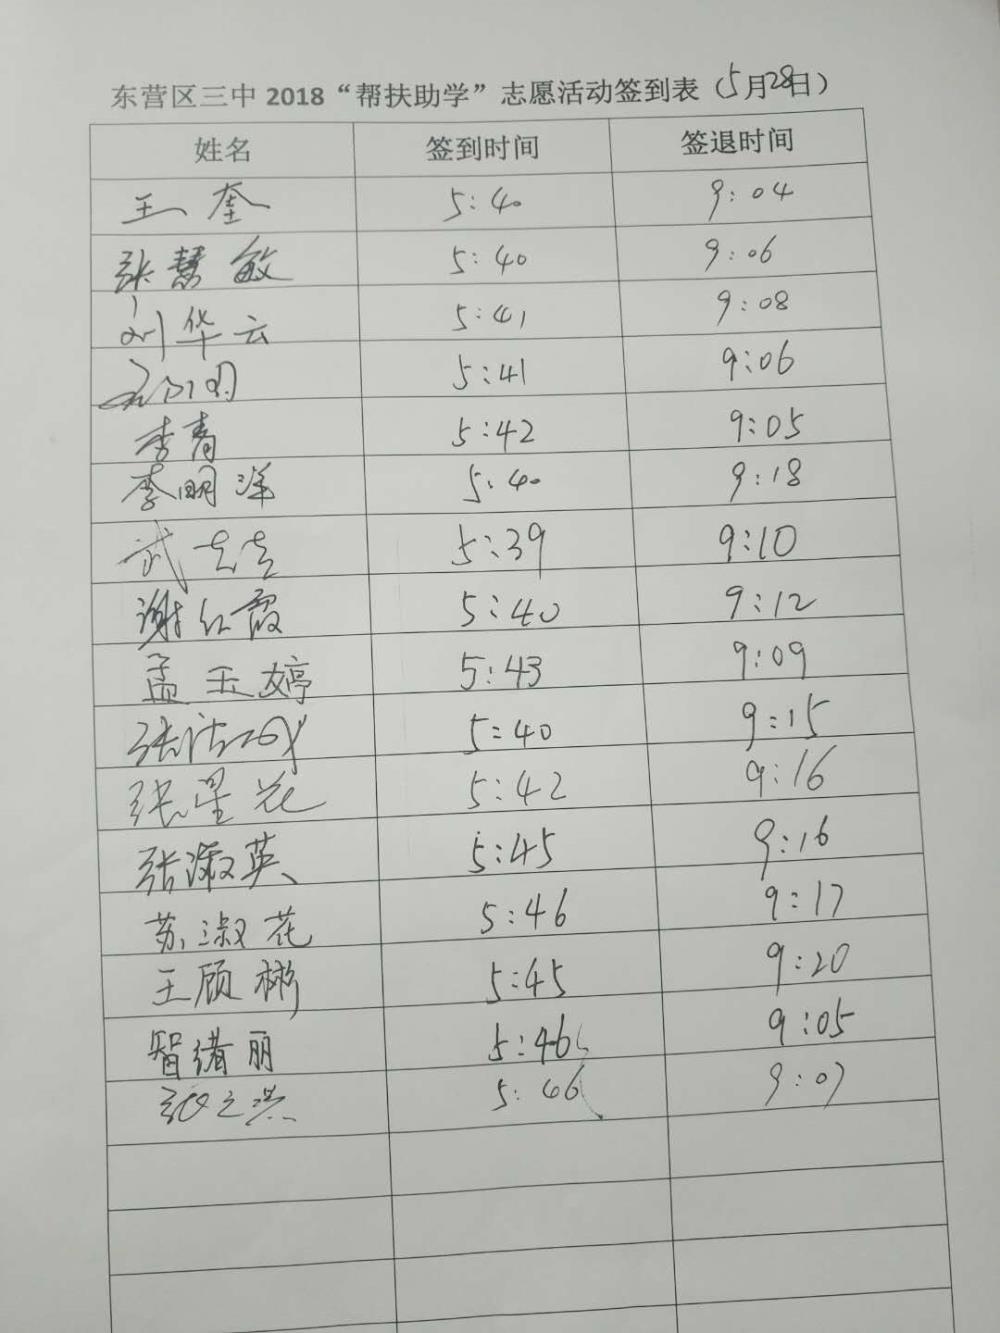 东营区三中2018“帮扶助学”志愿活动签到表（5月28日）
姓名 签到时间 签退时间
王奎 5:40 9:04
张慧敏 5:40 9:06
刘华云 5:41 9:08
5:41 9:06
李青 5:42 9:05
李明洋 5:40 9:18
武 5:39 9:10
谢红霞 5:40 9:12
孟玉婷 5:43 9:09
张 5:40 9:15
张星花 5:42 9:16
张淑英 5:45 9:16
苏淑花 5:46 9:17
王顾彬 5:45 9:20
智绪丽 5:46 9:05
张之洪 5:46 9:07